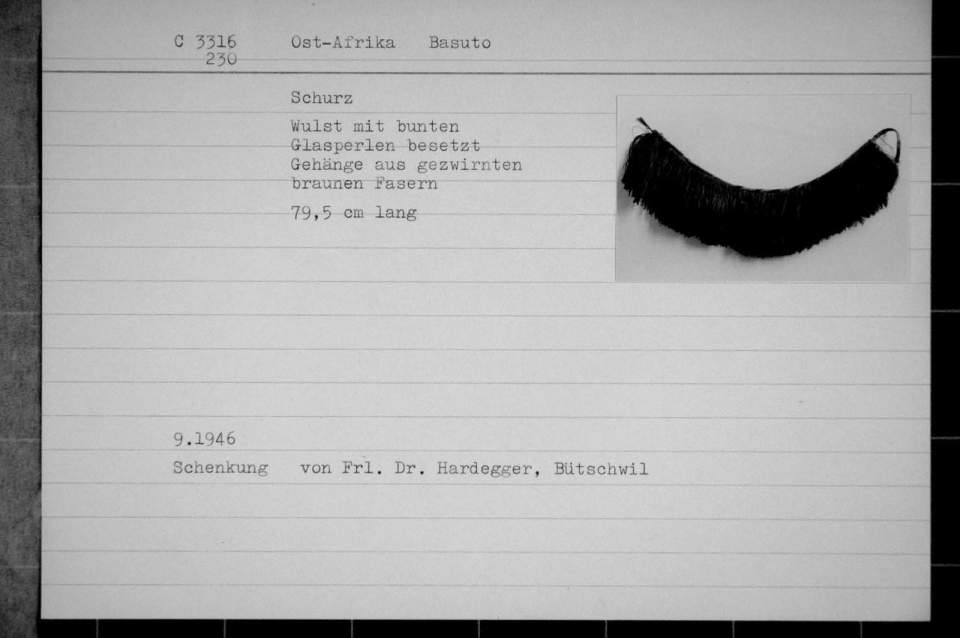 C 3316 Ost-Afrika Basuto
230
Schurz
Wulst mit bunten
Glasperlen besetzt
Gehänge aus gezwirnten
braunen Fasern
79,5 cm lang
9.1946
Schenkung von Frl. Dr. Hardegger, Bütschwil